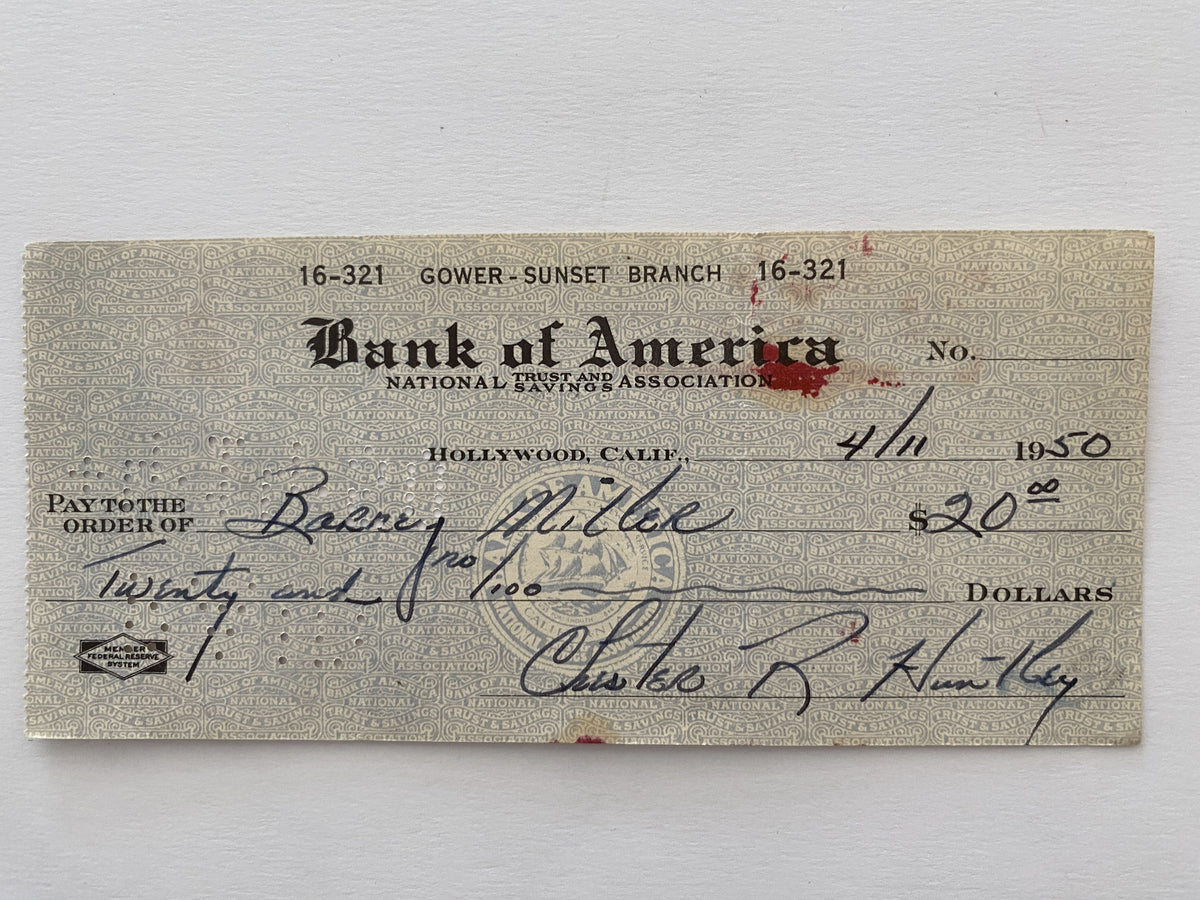 16-321 GOWER-SUNSET BRANCH 16-321
Bank of America
NATIONAL TRUST AND SAVINGS ASSOCIATION
No.
HOLLYWOOD, CALIF., 4/11 1950
PAY TO THE ORDER OF Barney Miller $20 00
Twenty and no/100 DOLLARS
MEMBER FEDERAL RESERVE SYSTEM
Chester R Huntley